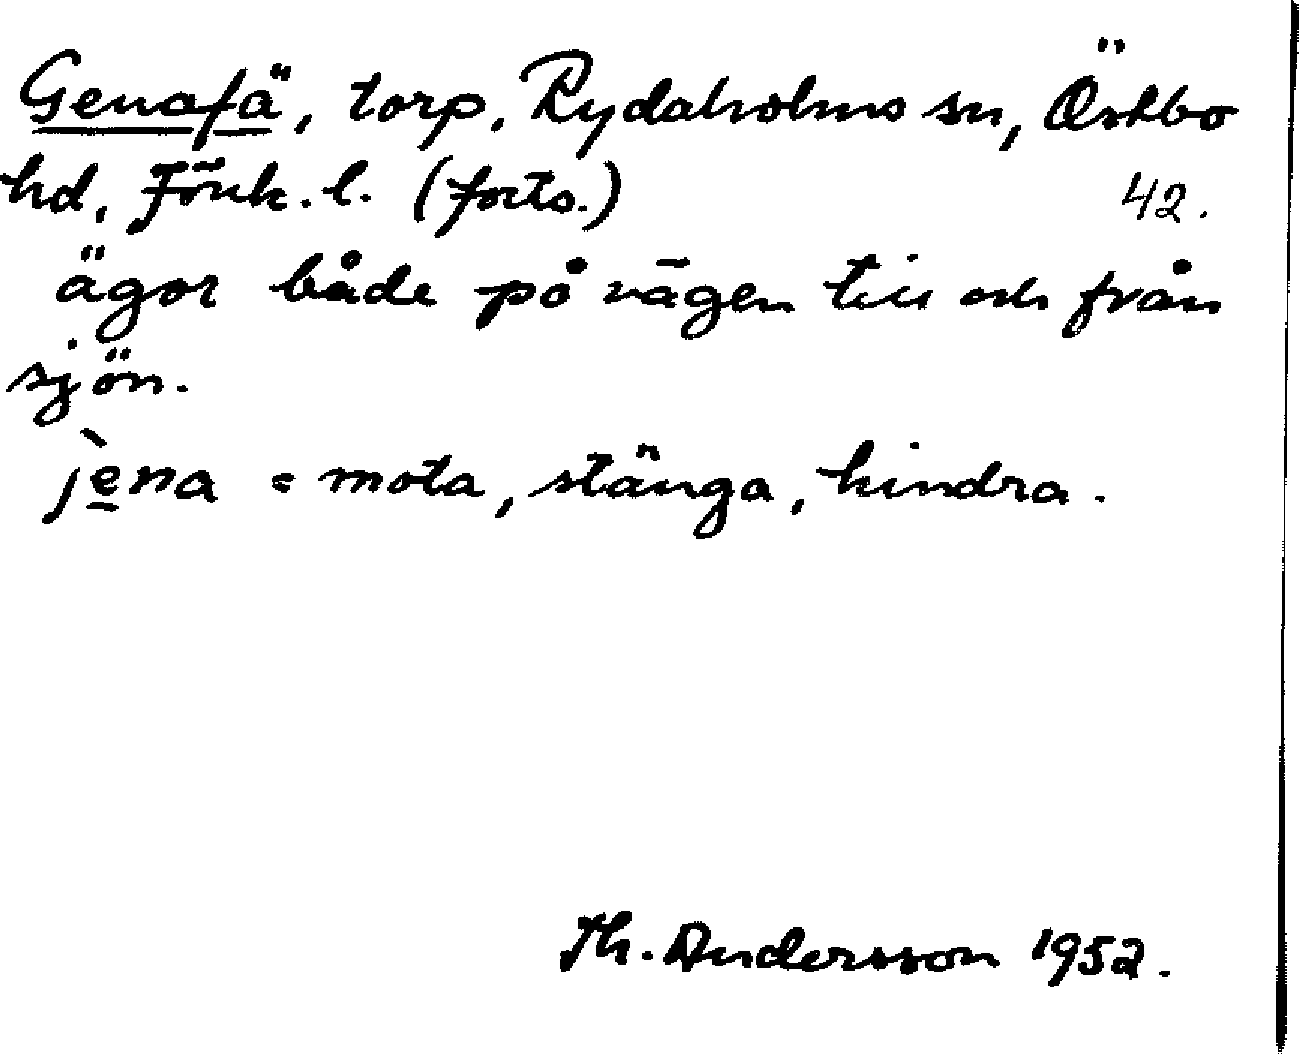 Genafä, torp, Rydaholms sn, Östbo
hd, Jönk. l. (forts.)
42.
ägor både på vägen till och från
sjön.
jèna = mota, stänga, hindra.
Th. Andersson 1952.